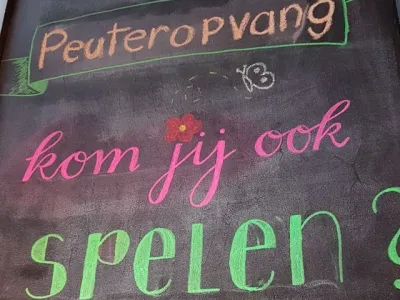 Peuteropvang
kom jij ook
SPELEN?